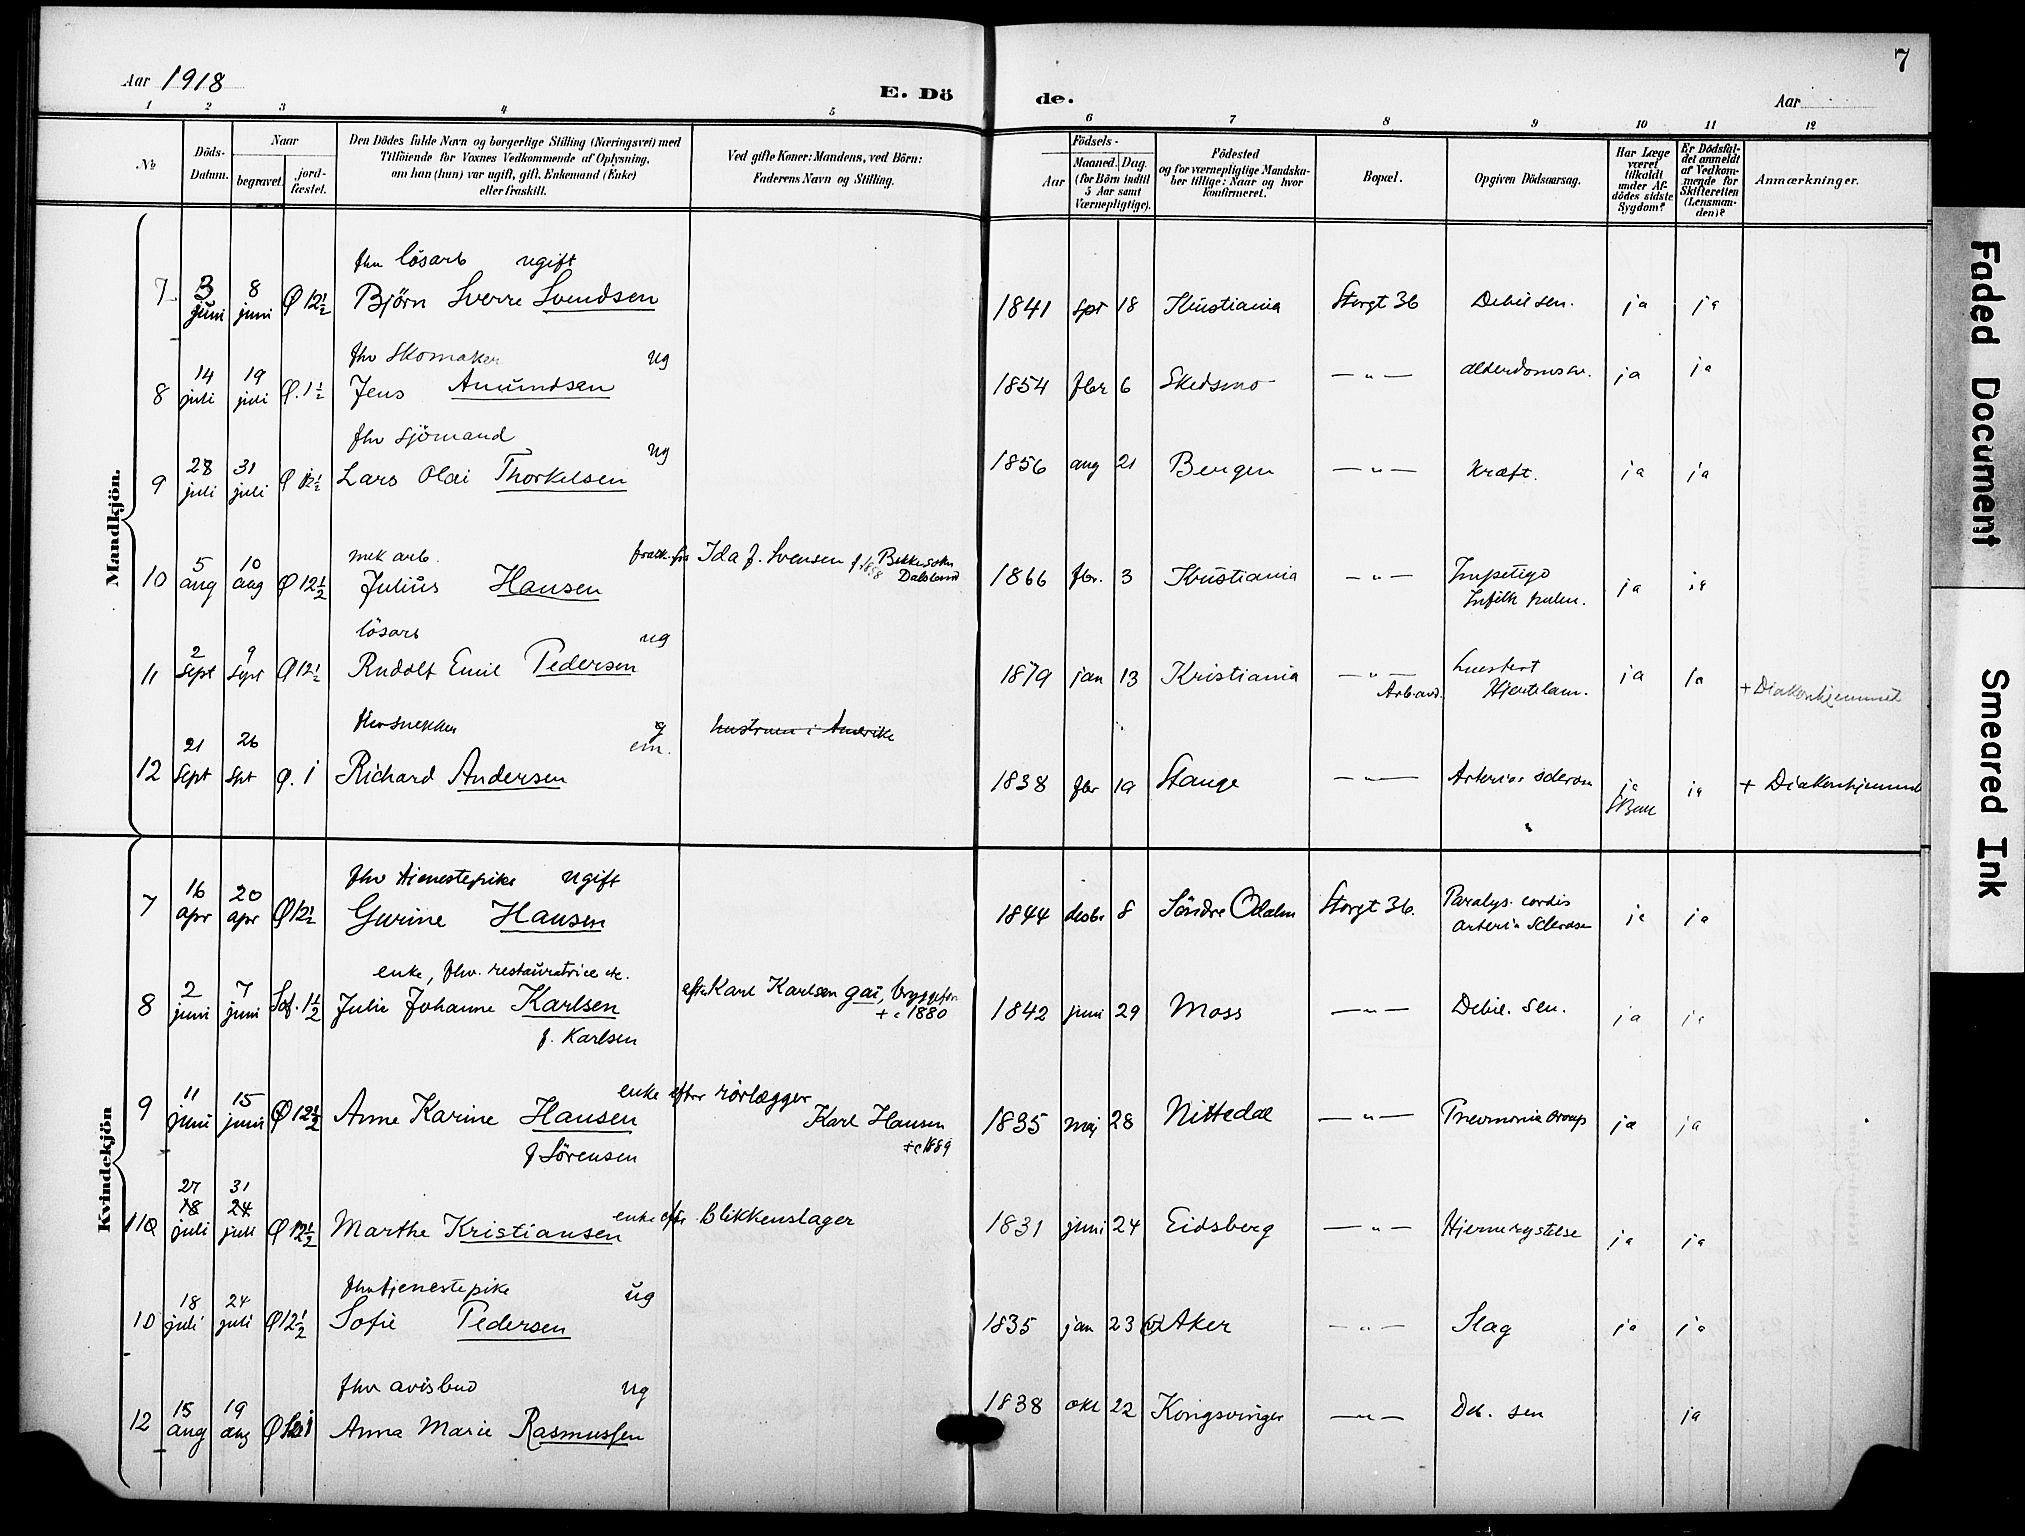 7
Aar 1918
E. Dö
de.
Aar
1 2 3 4 5 6 7 8 9 10 11 12
No
Döds-
Datum.
Naar
begravet.
jord-
fæstet.
Den Dödes fulde Navn og borgerlige Stilling (Næringsvei) med
Tilföiende for Voxnes Vedkommende af Oplysning,
om han (hun) var ugift, gift, Enkemand (Enke)
eller fraskilt.
Ved gifte Koner: Mandens, ved Börn:
Faderens Navn og Stilling.
Födsels-
Aar
Maaned. Dag.
(for Börn indtil
5 Aar samt
Værnepligtige).
Födested
og for værnepligtige Mandska-
ber tillige: Naar og hvor
konfirmeret.
Bopæl.
Opgiven Dödsaarsag.
Har Læge
været
tilkaldt
under Af-
dödes sidste
Sygdom?
Er Dödsfal-
det anmeldt
af Vedkom-
mende for
Skifteretten
(Lensman-
den)?
Anmærkninger.
Mandkjön.
fhv lösarb ugift
7 3 juni 8 juni Ø 12½ Björn Sverre Svendsen 1841 spt 18 Kristiania Storgt 36 Debil sen. ja ja
fhv Skomaker ug
8 14 juli 19 juli Ø. 1½ Jens Amundsen 1854 fbr 6 Skedsmo — " — alderdomssv. ja ja
fhv Sjömand ug
9 28 juli 31 juli Ø Lars Olai Thorkelsen 1856 aug 21 Bergen — " — Kræft. ja ja
mek arb. Ida f. Svensen
Dalsland
10 5 aug 10 aug Ø 12½ Julius Hansen 1866 fbr. 3 Kristiania — " — Impetigo ja ja
lösarb ug
11 2 Sept 9 Sept Ø 12½ Rudolf Emil Pedersen 1879 jan 13 Kristiania — " — Hjertelam. ja ja + Diakonhjemmet
Arb.avd.
g hustruen i Amerika
em.
12 21 Sept 26 Spt Ø. 1 Richard Andersen 1838 fbr 19 Stange — " — ja ja + Diakonhjemmet
Kvindekjön
fhv tienestepike ugift
7 16 apr 20 apr Ø 12½ Gurine Hansen 1844 desbr 8 Söndre Odalen Storgt 36. Paralys. cordis ja ja
arteria Sclerose
enke, fhv. restauratrice etc.
8 2 juni 7 juni Sof. 1½ Julie Johanne Karlsen efter Karl Karlsen gai, 1842 juni 29 Moss — " — Debil. Sen. ja ja
+ c 1880
f. Karlsen
enke efter rörlægger
9 11 juni 15 juni Ø 12½ Anne Karine Hansen Karl Hansen 1835 maj 28 Nittedal — " — Pneumonia croup ja ja
+ c 1889
f Sörensen
27 31
11 18 juli 24 juli Ø 12½ Marthe Kristiansen enke efter Blikkenslager 1831 juni 24 Eidsberg — " — Hjernerystelse ja ja
fhv tjenestepike ug
10 18 juli 24 juli Ø 12½ Sofie Pedersen 1835 jan 23 Aker — " — Slag ja ja
fhv avisbud ug
12 15 aug 19 aug Ø Anna Marie Rasmussen 1838 okt 22 Kongsvinger — " — Deb. sen ja
Faded Document
Smeared Ink